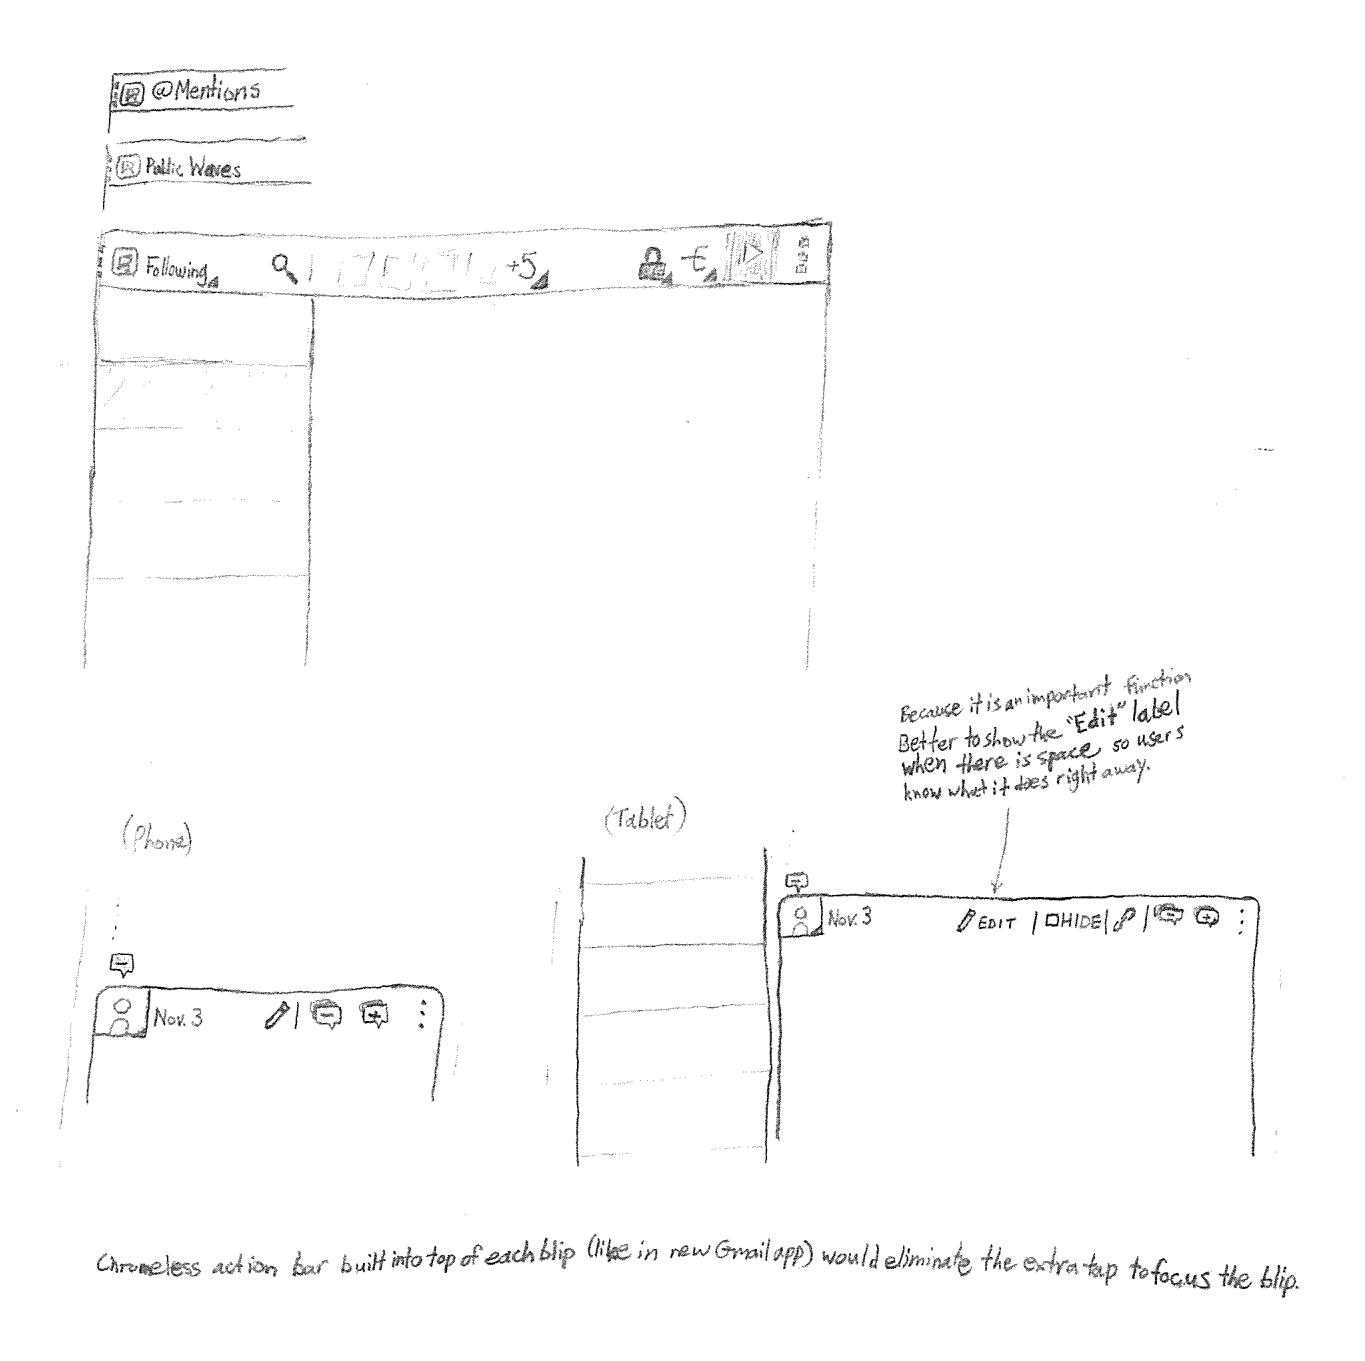 @Mentions
Public Waves
Following
+5
Because it is an important function
Better to show the "Edit" label
when there is space so users
know what it does right away.
(Phone)
(Tablet)
Nov. 3
EDIT | HIDE | |
Nov. 3
Chromeless action bar built into top of each blip (like in new Gmail app) would eliminate the extra tap to focus the blip.